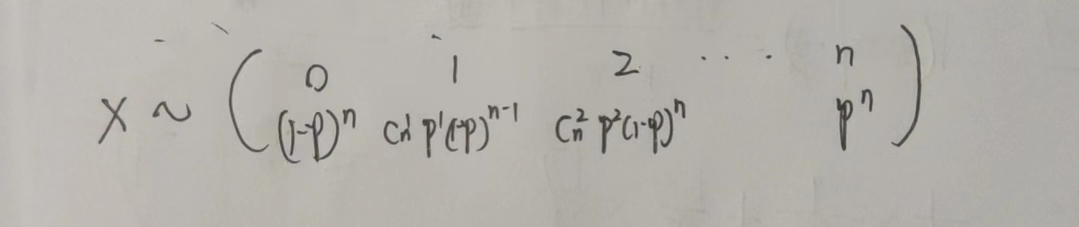 0 1 2 ···· n
X ~ ( (1-p)^n C_n^1 p^1(1-p)^{n-1} C_n^2 p^2(1-p)^n p^n )